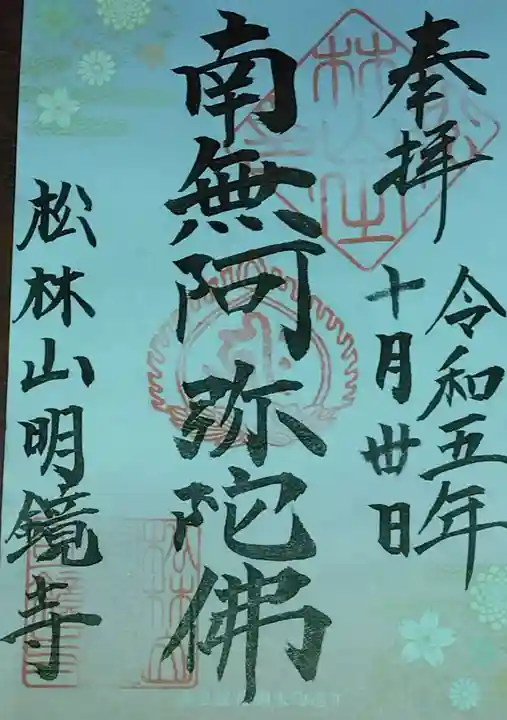 奉拝
令和五年
十月丗日
南無阿弥陀佛
松林山明鏡寺